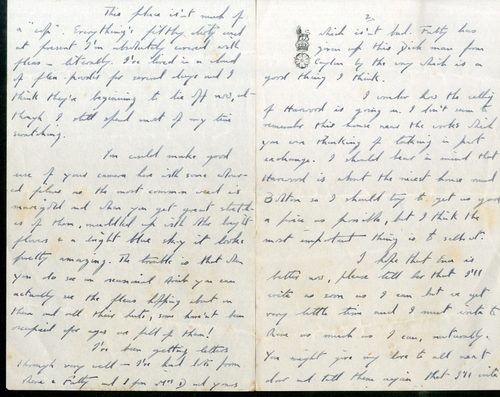 This place isn't much of
a "up". Everything's filthy dirty and
at present I'm absolutely covered with
fleas – literally. I've lived in a cloud
of flea-powder for several days and I
think they're beginning to lie off now, al-
though I still spend most of my time
scratching.
You could make good
use of your camera here with some
films as the most common weed is
marigold and when you get great stretch-
es of them, muddled up with the bright
flowers & a bright blue sky it looks
pretty amazing. The trouble is that when
you do see an occasional you can
actually see the fleas hopping about on
them and all their huts, some hasn't been
occupied for ages are full of them!
I've been getting letters
through very well – I've had lots from
& Fatty and 1 from Mrs D and yours
2
which isn't bad. Fatty has
given up this man from
Ceylon by the way which is a
good thing I think.
I wonder how the selling
of Harwood is going on. I don't seem to
remember this house near the works which
you were thinking of taking in part
exchange. I should bear in mind that
Harwood is about the nicest house round
Bolton so I should try to get as good
a price as possible, but I think the
most important thing is to sell it.
I hope that is
better now, please tell her that I'll
write as soon as I can but we get
very little time and I must write to
as much as I can, naturally.
You might give my love to all next
door and tell them again that I'll write